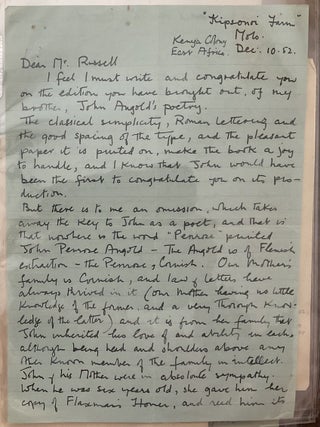 "Kipsonoi Farm"
Molo.
Kenya Colony
East Africa. Dec: 10. 52.
Dear Mr. Russell
I feel I must write and congratulate you
on the edition you have brought out, of my
brother, John Angold's poetry.
The classical simplicity, Roman lettering and
the good spacing of the type, and the pleasant
paper it is printed on, make the book a joy
to handle, and I know that John would have
been the first to congratulate you on its pro-
duction.
But there is to me an omission, which takes
away the key to John as a poet, and that is
that nowhere is the word "Penrose" printed
John Penrose Angold - The Angold is of Flemish
extraction - the Penrose, Cornish. Our Mother's
family is Cornish, and law & letters have
always thrived in it (our Mother having no little
knowledge of the former and a very thorough know-
ledge of the latter) and it is from her family that
John inherited his love of and ability in each,
although being head and shoulders above any
other known member of the family in intellect.
John, & his Mother were in absolute sympathy.
When he was six years old, she gave him her
copy of Flaxman's Homer, and read him its